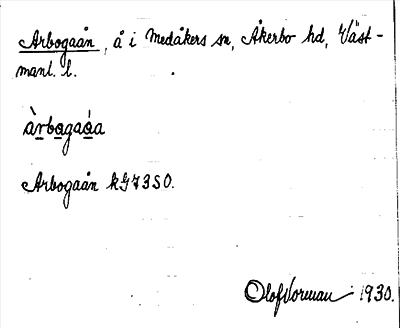 Arbogaån, å i Medåkers sn, Åkerbo hd, Väst-
manl. l.
àrbogaåa
Arbogaån kG73SO.
Olof Norman 1930.